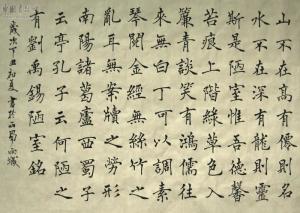 山不在高有僊則名
水不在深有龍則靈
斯是陋室惟吾德馨
苔痕上階綠草色入
簾青談笑有鴻儒往
來無白丁可以調素
琴閱金經無絲竹之
亂耳無案牘之勞形
南陽諸葛廬西蜀子
云亭孔子云何陋之
有劉禹錫陋室銘
歲次丑初夏書於西蜀雨城